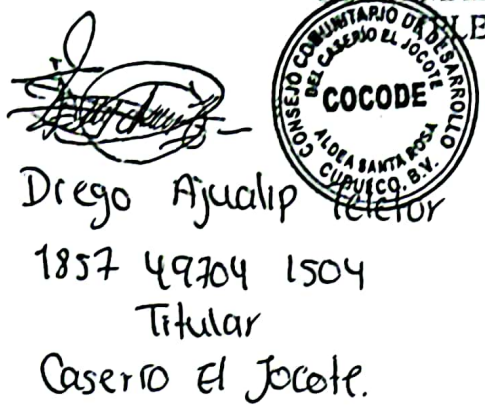 CONSEJO COMUNITARIO DE DESARROLLO
DEL CASERIO EL JOCOTE
COCODE
ALDEA SANTA ROSA
CUBULCO, B.V.
Diego Ajualip
1857 49704 1504
Titular
Caserio El Jocote.